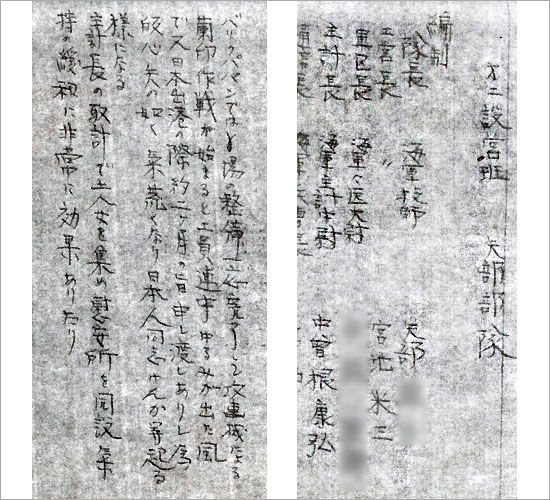 才二設営班 矢部部隊
編制
隊長 海軍技師 矢部
工営長 〃 宮地米三
軍医長 海軍々医大尉
主計長 海軍主計中尉 中曾根康弘
バリクパパンでは場の整備一応完了して攻撃機による
蘭印作戦が始まると工員連中ゆるみが出た風
で又日本出港の際約二ヶ月の旨申し渡しありし為
皈心矢の如く気荒くなり日本人同志けんか等起る
様になる
主計長の取計で土人女を集め慰安所を開設気
持の緩和に非常に効果ありたり